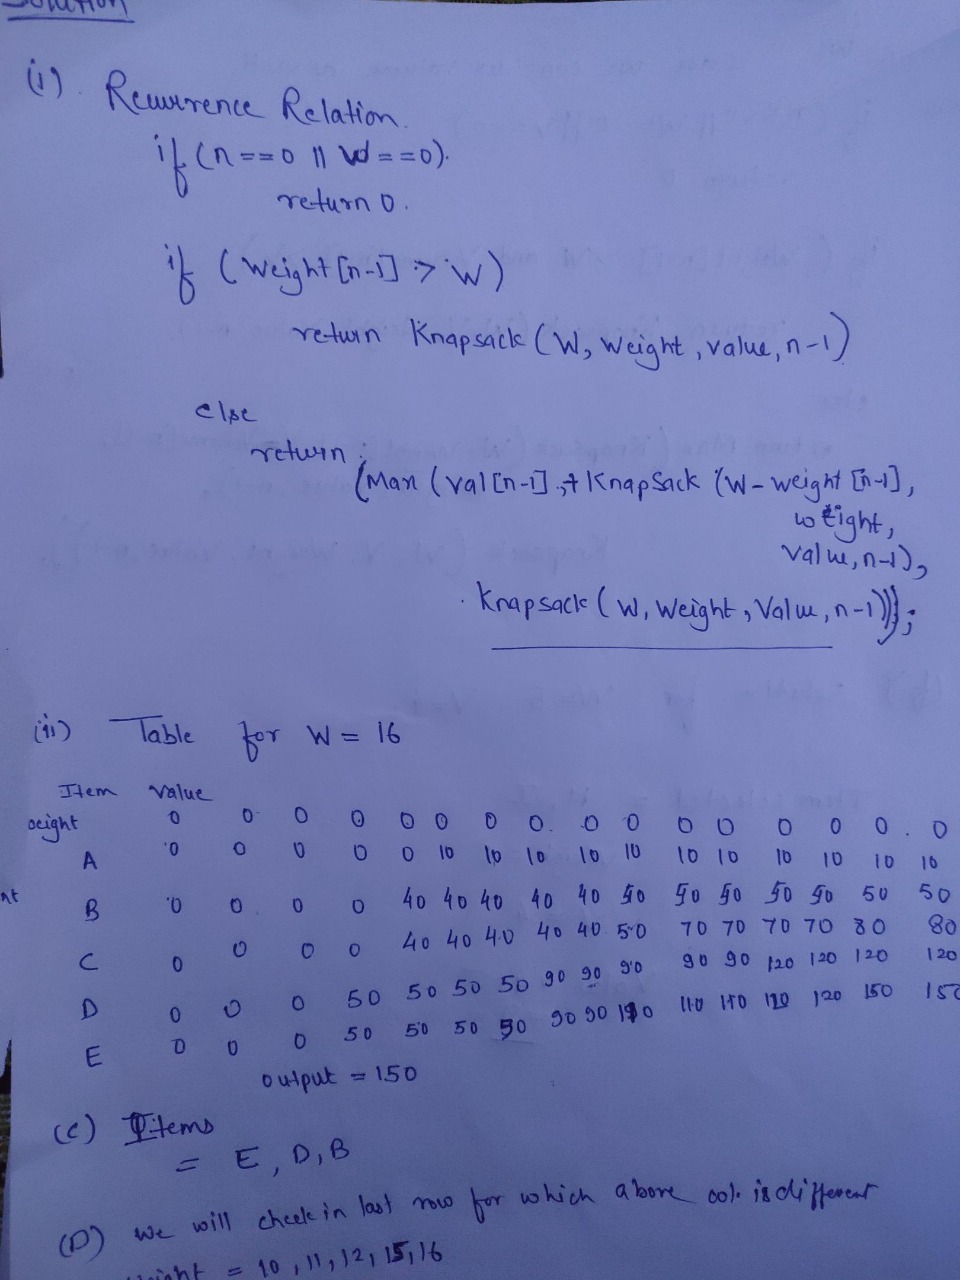 Solution
(i). Recurrence Relation.
if (n==0 || W==0).
return 0.
if (Weight [n-1] > W)
return Knapsack (W, Weight, value, n-1)
else
return
(Max (val [n-1] + KnapSack (W - weight [n-1],
weight,
value, n-1),
Knapsack (W, Weight, Value, n-1)));
(ii) Table for W = 16
Item Value
eight 0 0 0 0 0 0 0 0. 0 0 0 0 0 0 0. 0
A 0 0 0 0 0 10 10 10 10 10 10 10 10 10 10 10
nt B 0 0. 0 0 40 40 40 40 40 50 50 50 50 50 50 50
C 0 0 0 0 40 40 40 40 40 50 70 70 70 70 80 80
D 0 0 0 50 50 50 50 90 90 90 90 90 120 120 120 120
E 0 0 0 50 50 50 50 90 90 110 110 120 150 150
output = 150
(c) Items
= E, D, B
(D) We will check in last row for which above col. is different
= 10, 11, 12, 15, 16